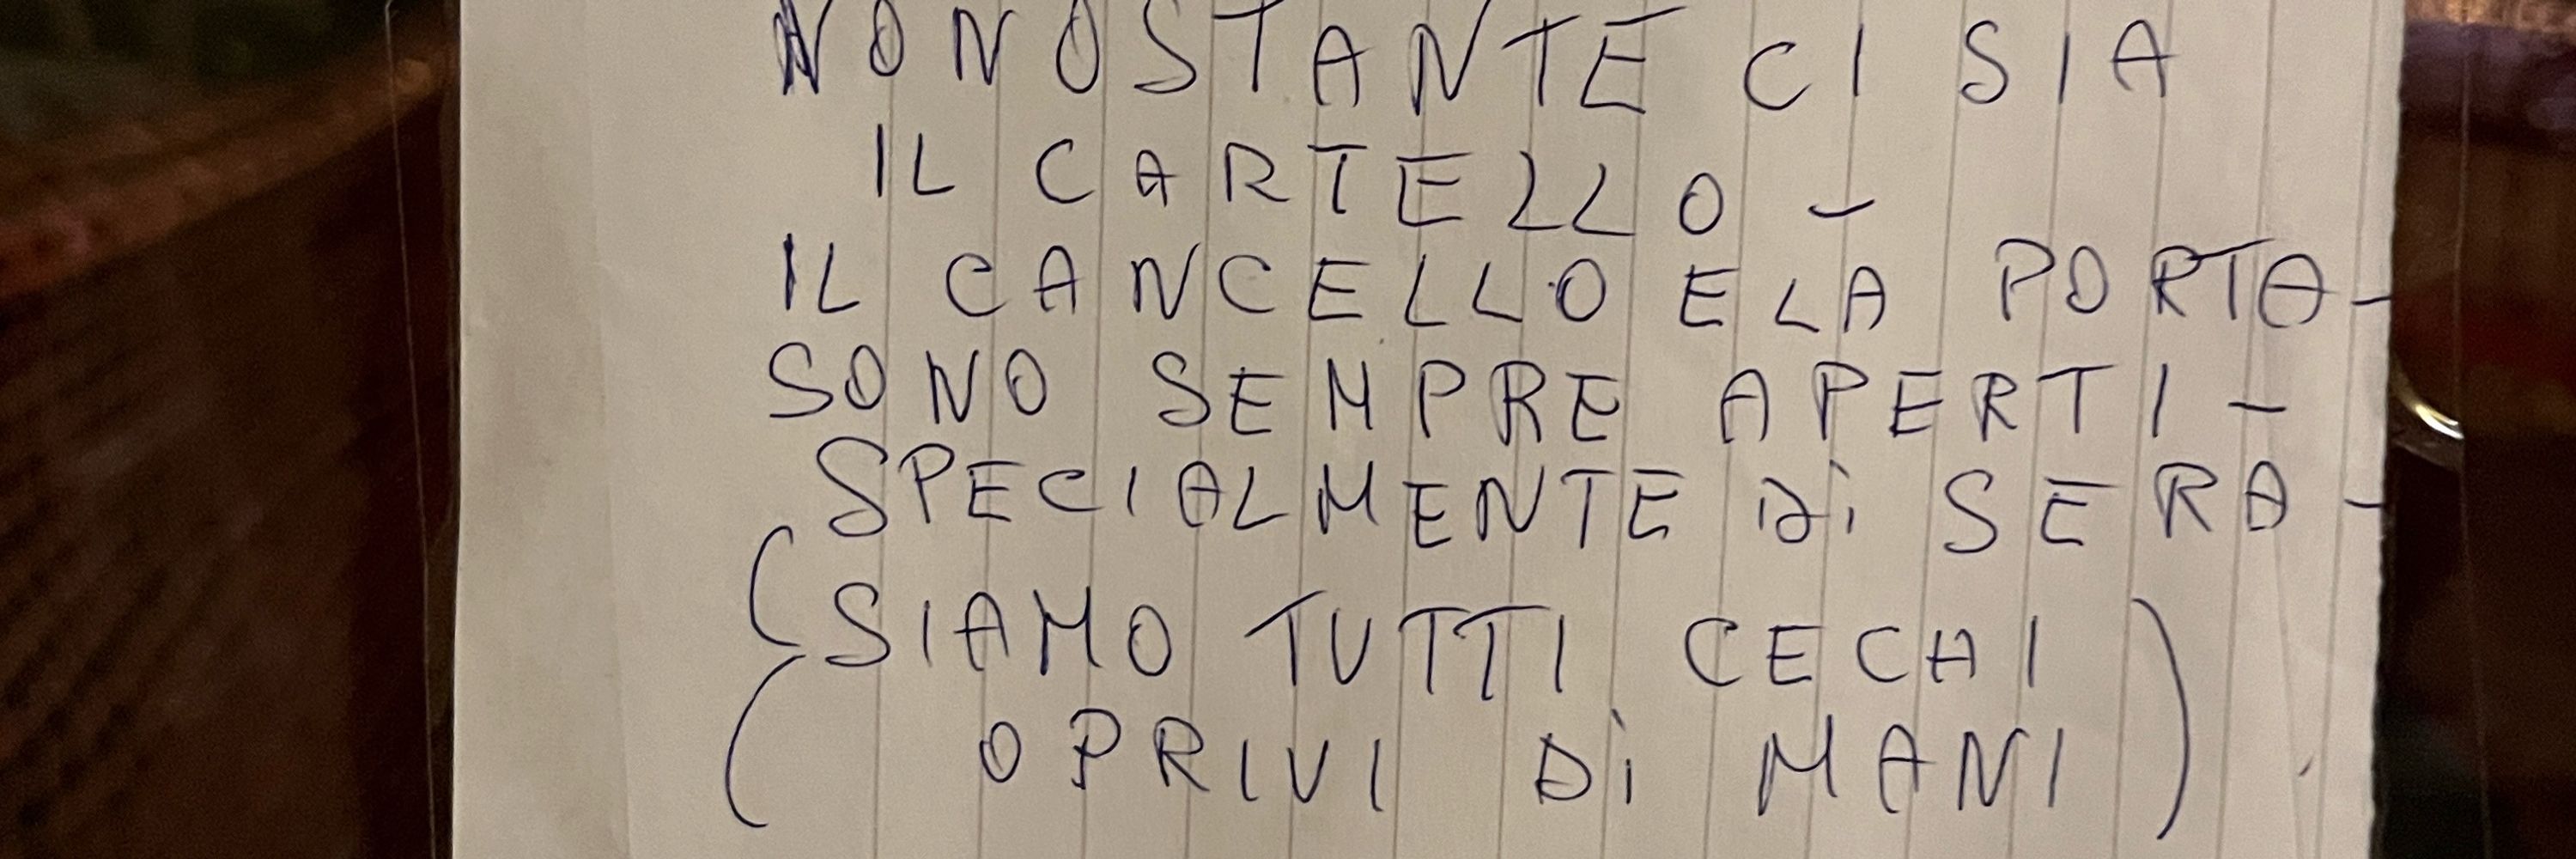 NONOSTANTE CI SIA
IL CARTELLO -
IL CANCELLO E LA PORTA -
SONO SEMPRE APERTI -
SPECIALMENTE Di SERA -
(SIAMO TUTTI CECHI
O PRIVI Di MANI)